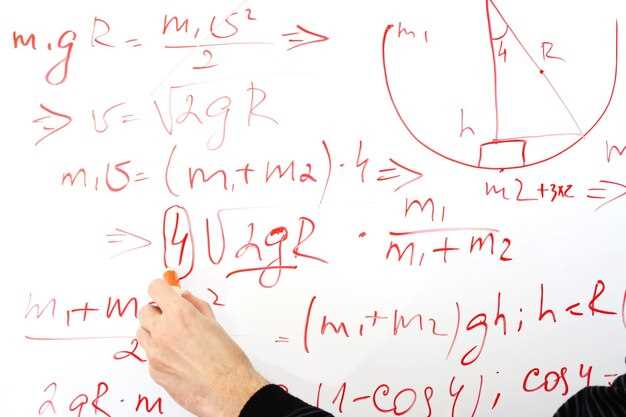 m₁gR = m₁υ²/2 ⇒
⇒ υ = √2gR
m₁υ = (m₁+m2)·4 ⇒
⇒ 4 √2gR · m₁/(m₁+m2)
m₁+m 2 / 2 = (m₁+m2)gh; h<R(
2gR·m (1-cos4); cos4 =
m₁
4
R
h
m2+3x2 ⇒
m